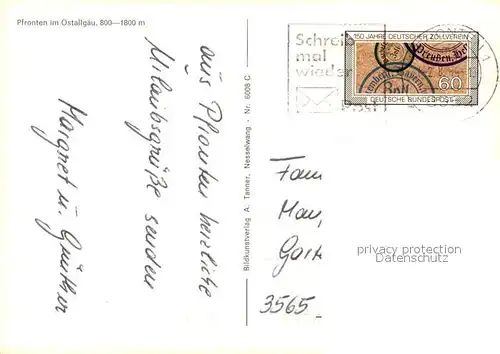 Pfronten im Ostallgäu, 800—1800 m
aus Pfronten herzliche
Urlaubsgrüße senden
Margret u. Günther
Bildkunstverlag A. Tanner, Nesselwang · Nr. 6008 C
Schreib
mal
wieder
Post
150 JAHRE DEUTSCHER ZOLLVEREIN
Preußen
60
DEUTSCHE BUNDESPOST
Fam
May,
3565
privacy protection
Datenschutz